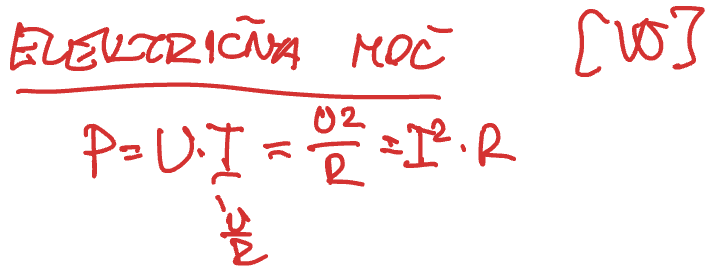 ELEKTRIČNA MOČ [W]
P = U · I = U2/R = I² · R
U/R